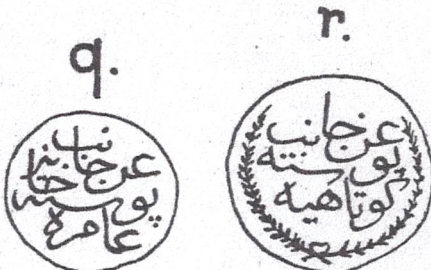 q.
عن جانب
پوسته خانه
عامره
r.
عن جانب
پوسته
كوتاهيه